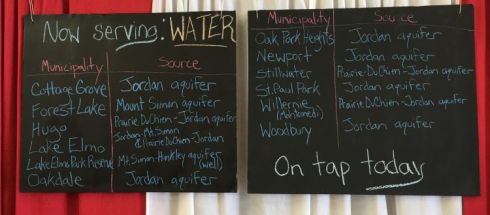 Now serving: WATER
Municipality Source
Cottage Grove Jordan aquifer
Forest Lake Mount Simon aquifer
Hugo Prairie DuChien-Jordan aquifer
Lake Elmo Jordan, Mt. Simon & Prairie DuChien-Jordan
Lake Elmo Park Reserve Mt. Simon-Hinkley aquifer (well)
Oakdale Jordan aquifer
Municipality Source
Oak Park Heights Jordan aquifer
Newport Jordan aquifer
Stillwater Prairie-DuChien-Jordan aquifer
St. Paul Park Jordan aquifer
Willernie (Mahtomedi) Prairie-DuChien-Jordan aquifer
Woodbury Jordan aquifer
On tap today